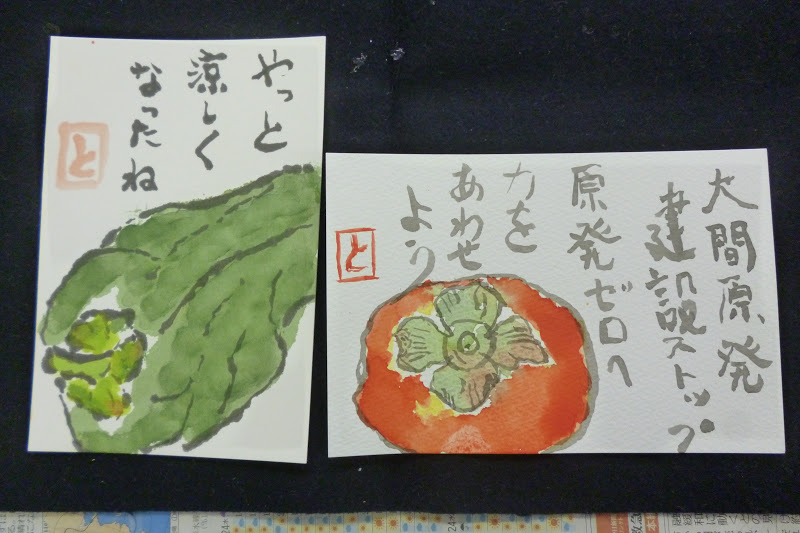 やっと
涼しく
なったね
と
大間原発
建設ストップ
原発ゼロへ
力を
あわせ
よう
と